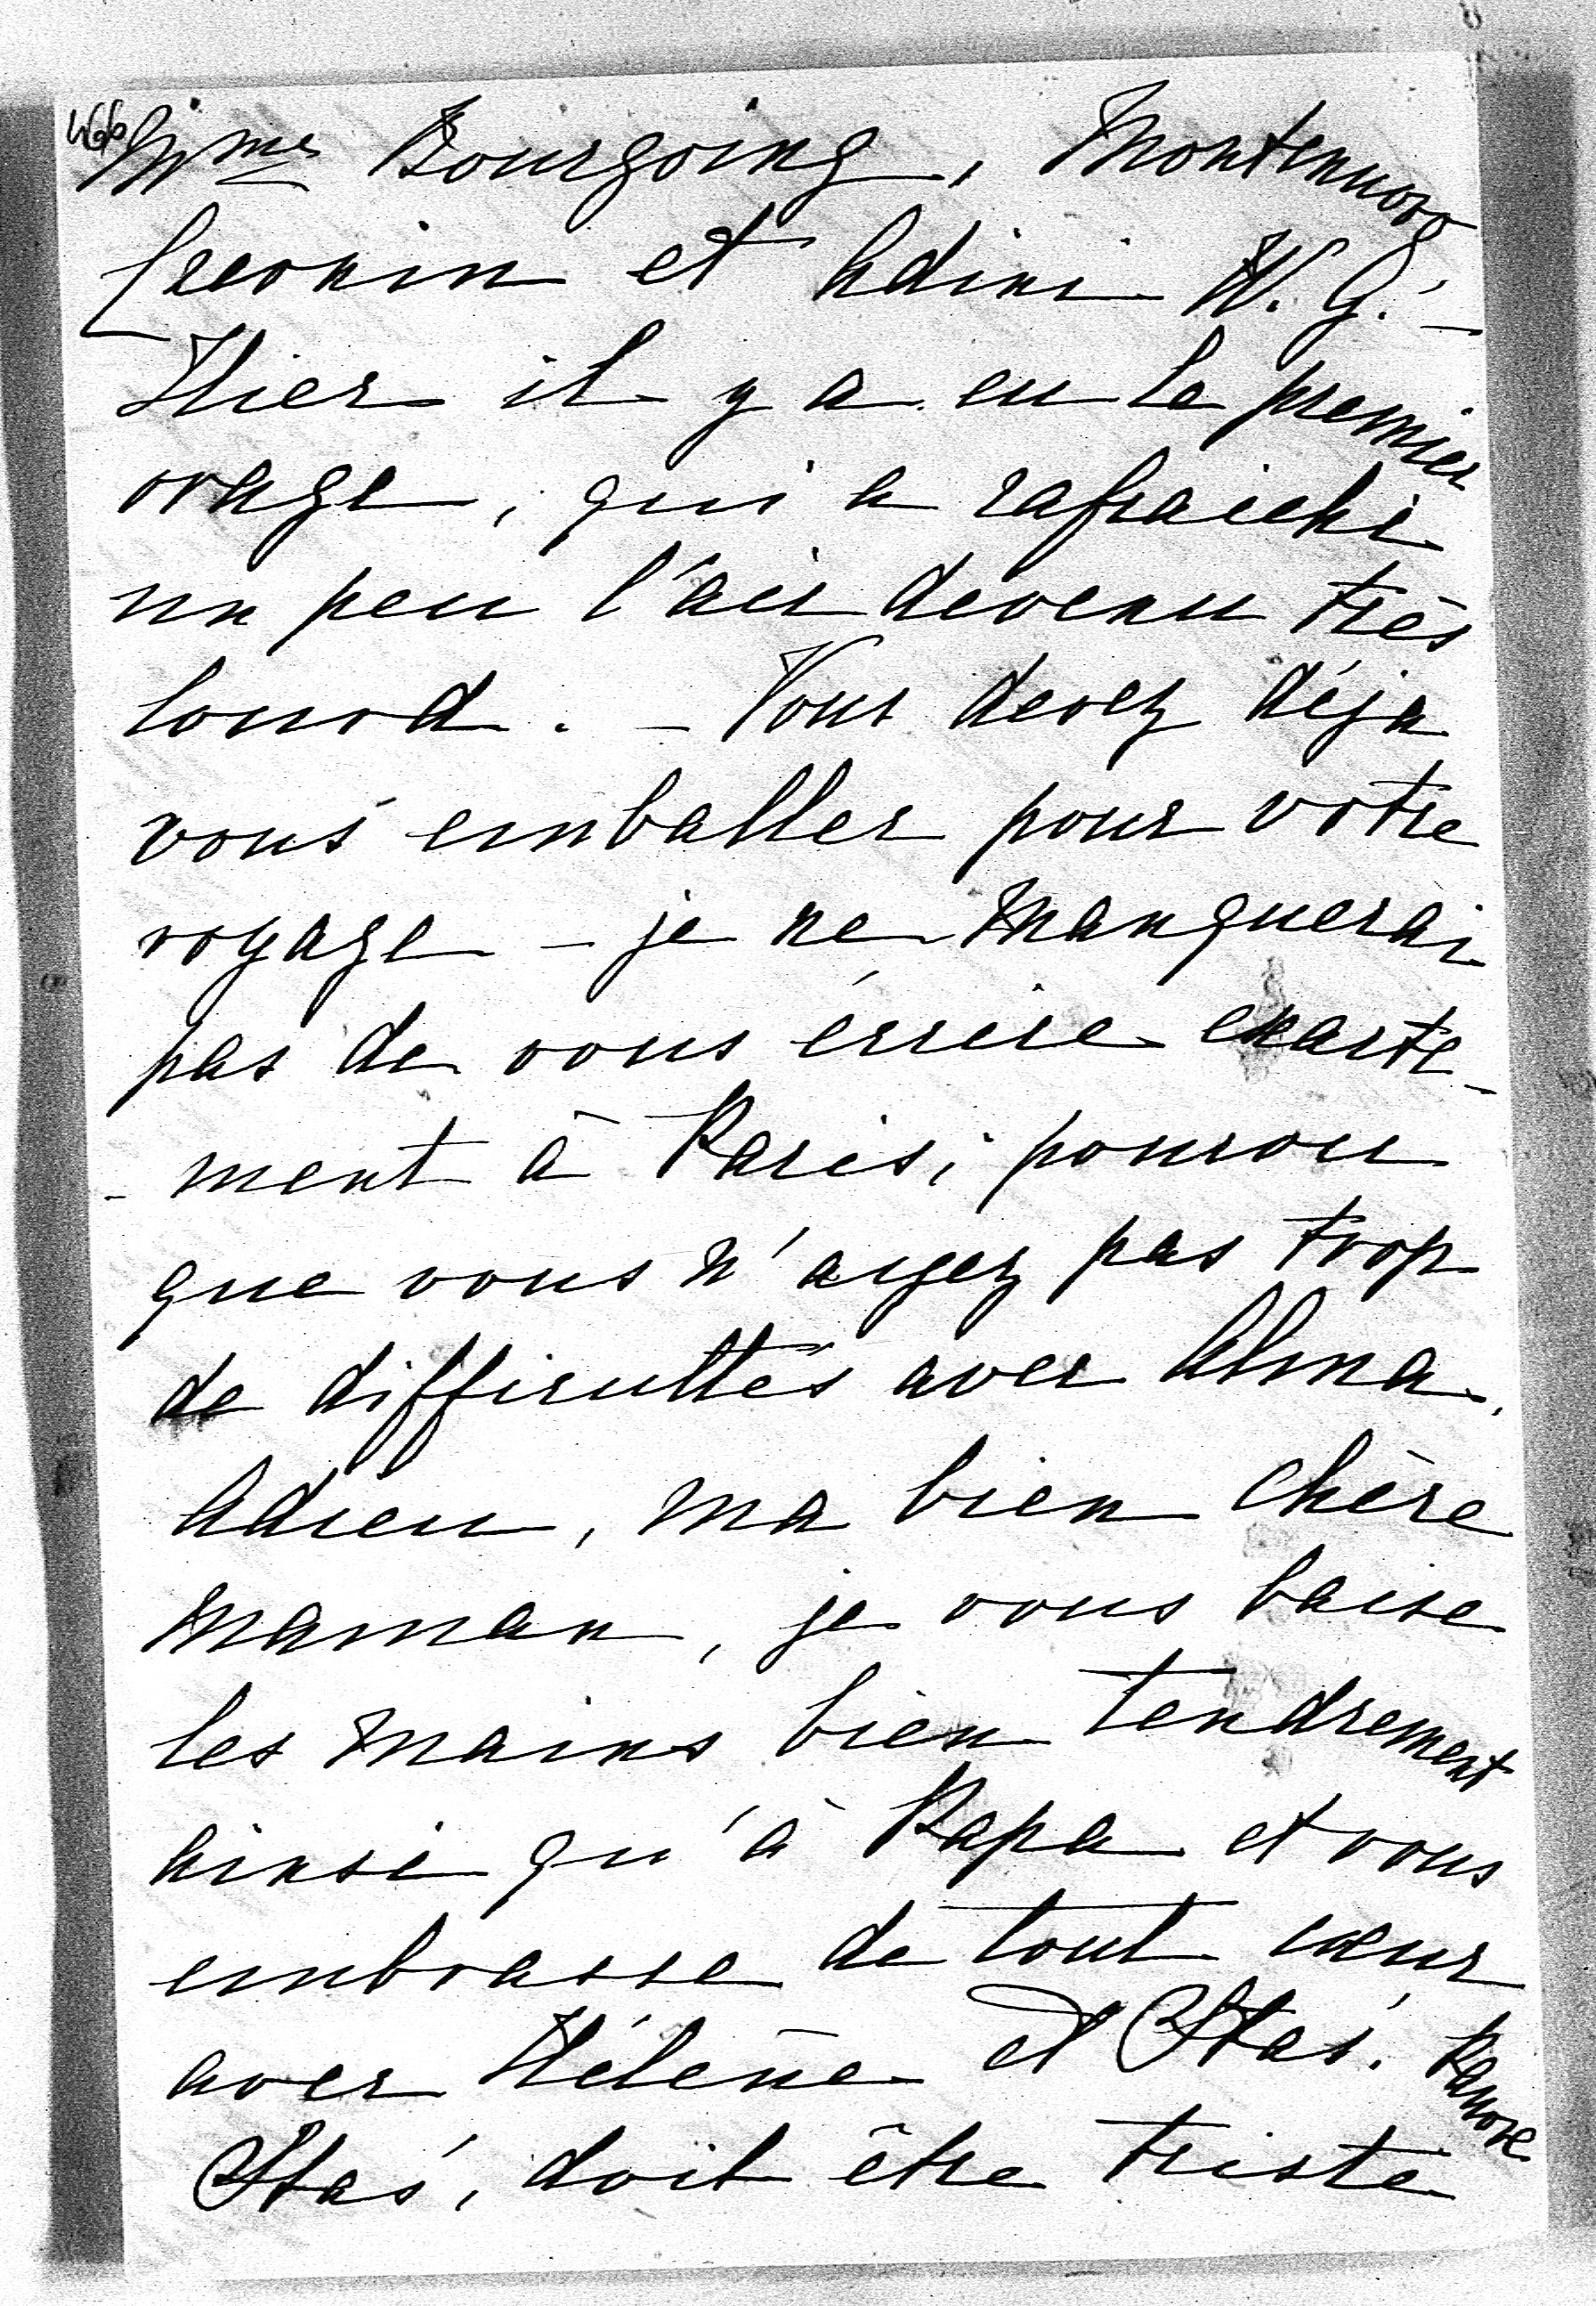 466
Mmes Bourgoing, Montenuovo
Czernin et Adini W. G. –
Hier il y a eu le premier
orage, qui a rafraichi
un peu l'air devenu très
lourd. – Vous devez déja
vous emballer pour votre
voyage – je ne manquerai
pas de vous écrire exacte-
-ment à Paris; pourvu
que vous n'ayez pas trop
de difficultés avec Alma.
Adieu, ma bien chère
maman, je vous baise
les mains bien tendrement
ainsi qu'à Papa et vous
embrasse de tout cœur
avec Hélène et Staś. Pauvre
Staś, doit être triste